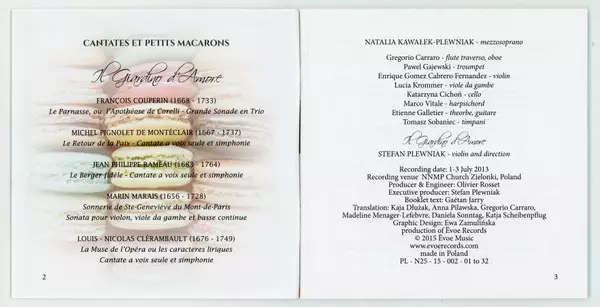 CANTATES ET PETITS MACARONS
Il Giardino d'Amore
FRANÇOIS COUPERIN (1668 - 1733)
Le Parnasse, ou l'Apothéose de Corelli - Grande Sonade en Trio
MICHEL PIGNOLET DE MONTÉCLAIR (1667 - 1737)
Le Retour de la Paix - Cantate a voix seule et simphonie
JEAN PHILIPPE RAMEAU (1683 - 1764)
Le Berger fidèle - Cantate a voix seule et simphonie
MARIN MARAIS (1656 - 1728)
Sonnerie de Ste-Geneviève du Mont-de-Paris
Sonata pour violon, viole da gambe et basse continue
LOUIS - NICOLAS CLÉRAMBAULT (1676 - 1749)
La Muse de l'Opéra ou les caractères liriques
Cantate a voix seule et simphonie
2
NATALIA KAWAŁEK-PLEWNIAK - mezzosoprano
Gregorio Carraro - flute traverso, oboe
Paweł Gajewski - troumpet
Enrique Gomez Cabrero Fernandez - violin
Lucia Krommer - viole da gambe
Katarzyna Cichoń - cello
Marco Vitale - harpsichord
Etienne Galletier - theorbe, guitare
Tomasz Sobaniec - timpani
Il Giardino d'Amore
STEFAN PLEWNIAK - violin and direction
Recording date: 1-3 July 2013
Recording venue NNMP Church Zielonki, Poland
Producer & Engineer: Olivier Rosset
Executive producer: Stefan Plewniak
Booklet text: Gaëtan Jarry
Translation: Kaja Dłużak, Anna Pilawska, Gregorio Carraro,
Madeline Menager-Lefebvre, Daniela Sonntag, Katja Scheibenpflug
Graphic Design: Ewa Zamulińska
production of Ëvoe Records
© 2015 Ëvoe Music
www.evoerecords.com
made in Poland
PL - N25 - 15 - 002 - 01 to 32
3